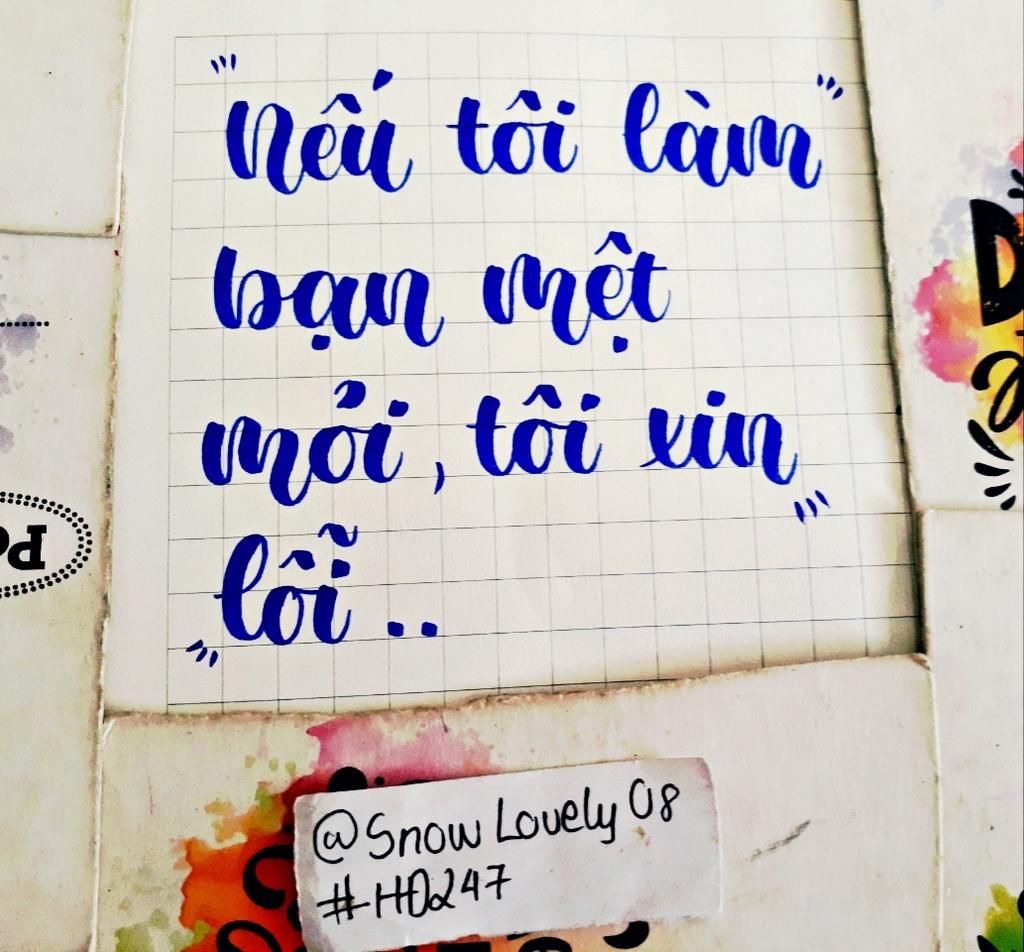 Nếu tôi làm
bạn mệt
mỏi, tôi xin
lỗi..
@Snow Lovely 08
#HD247